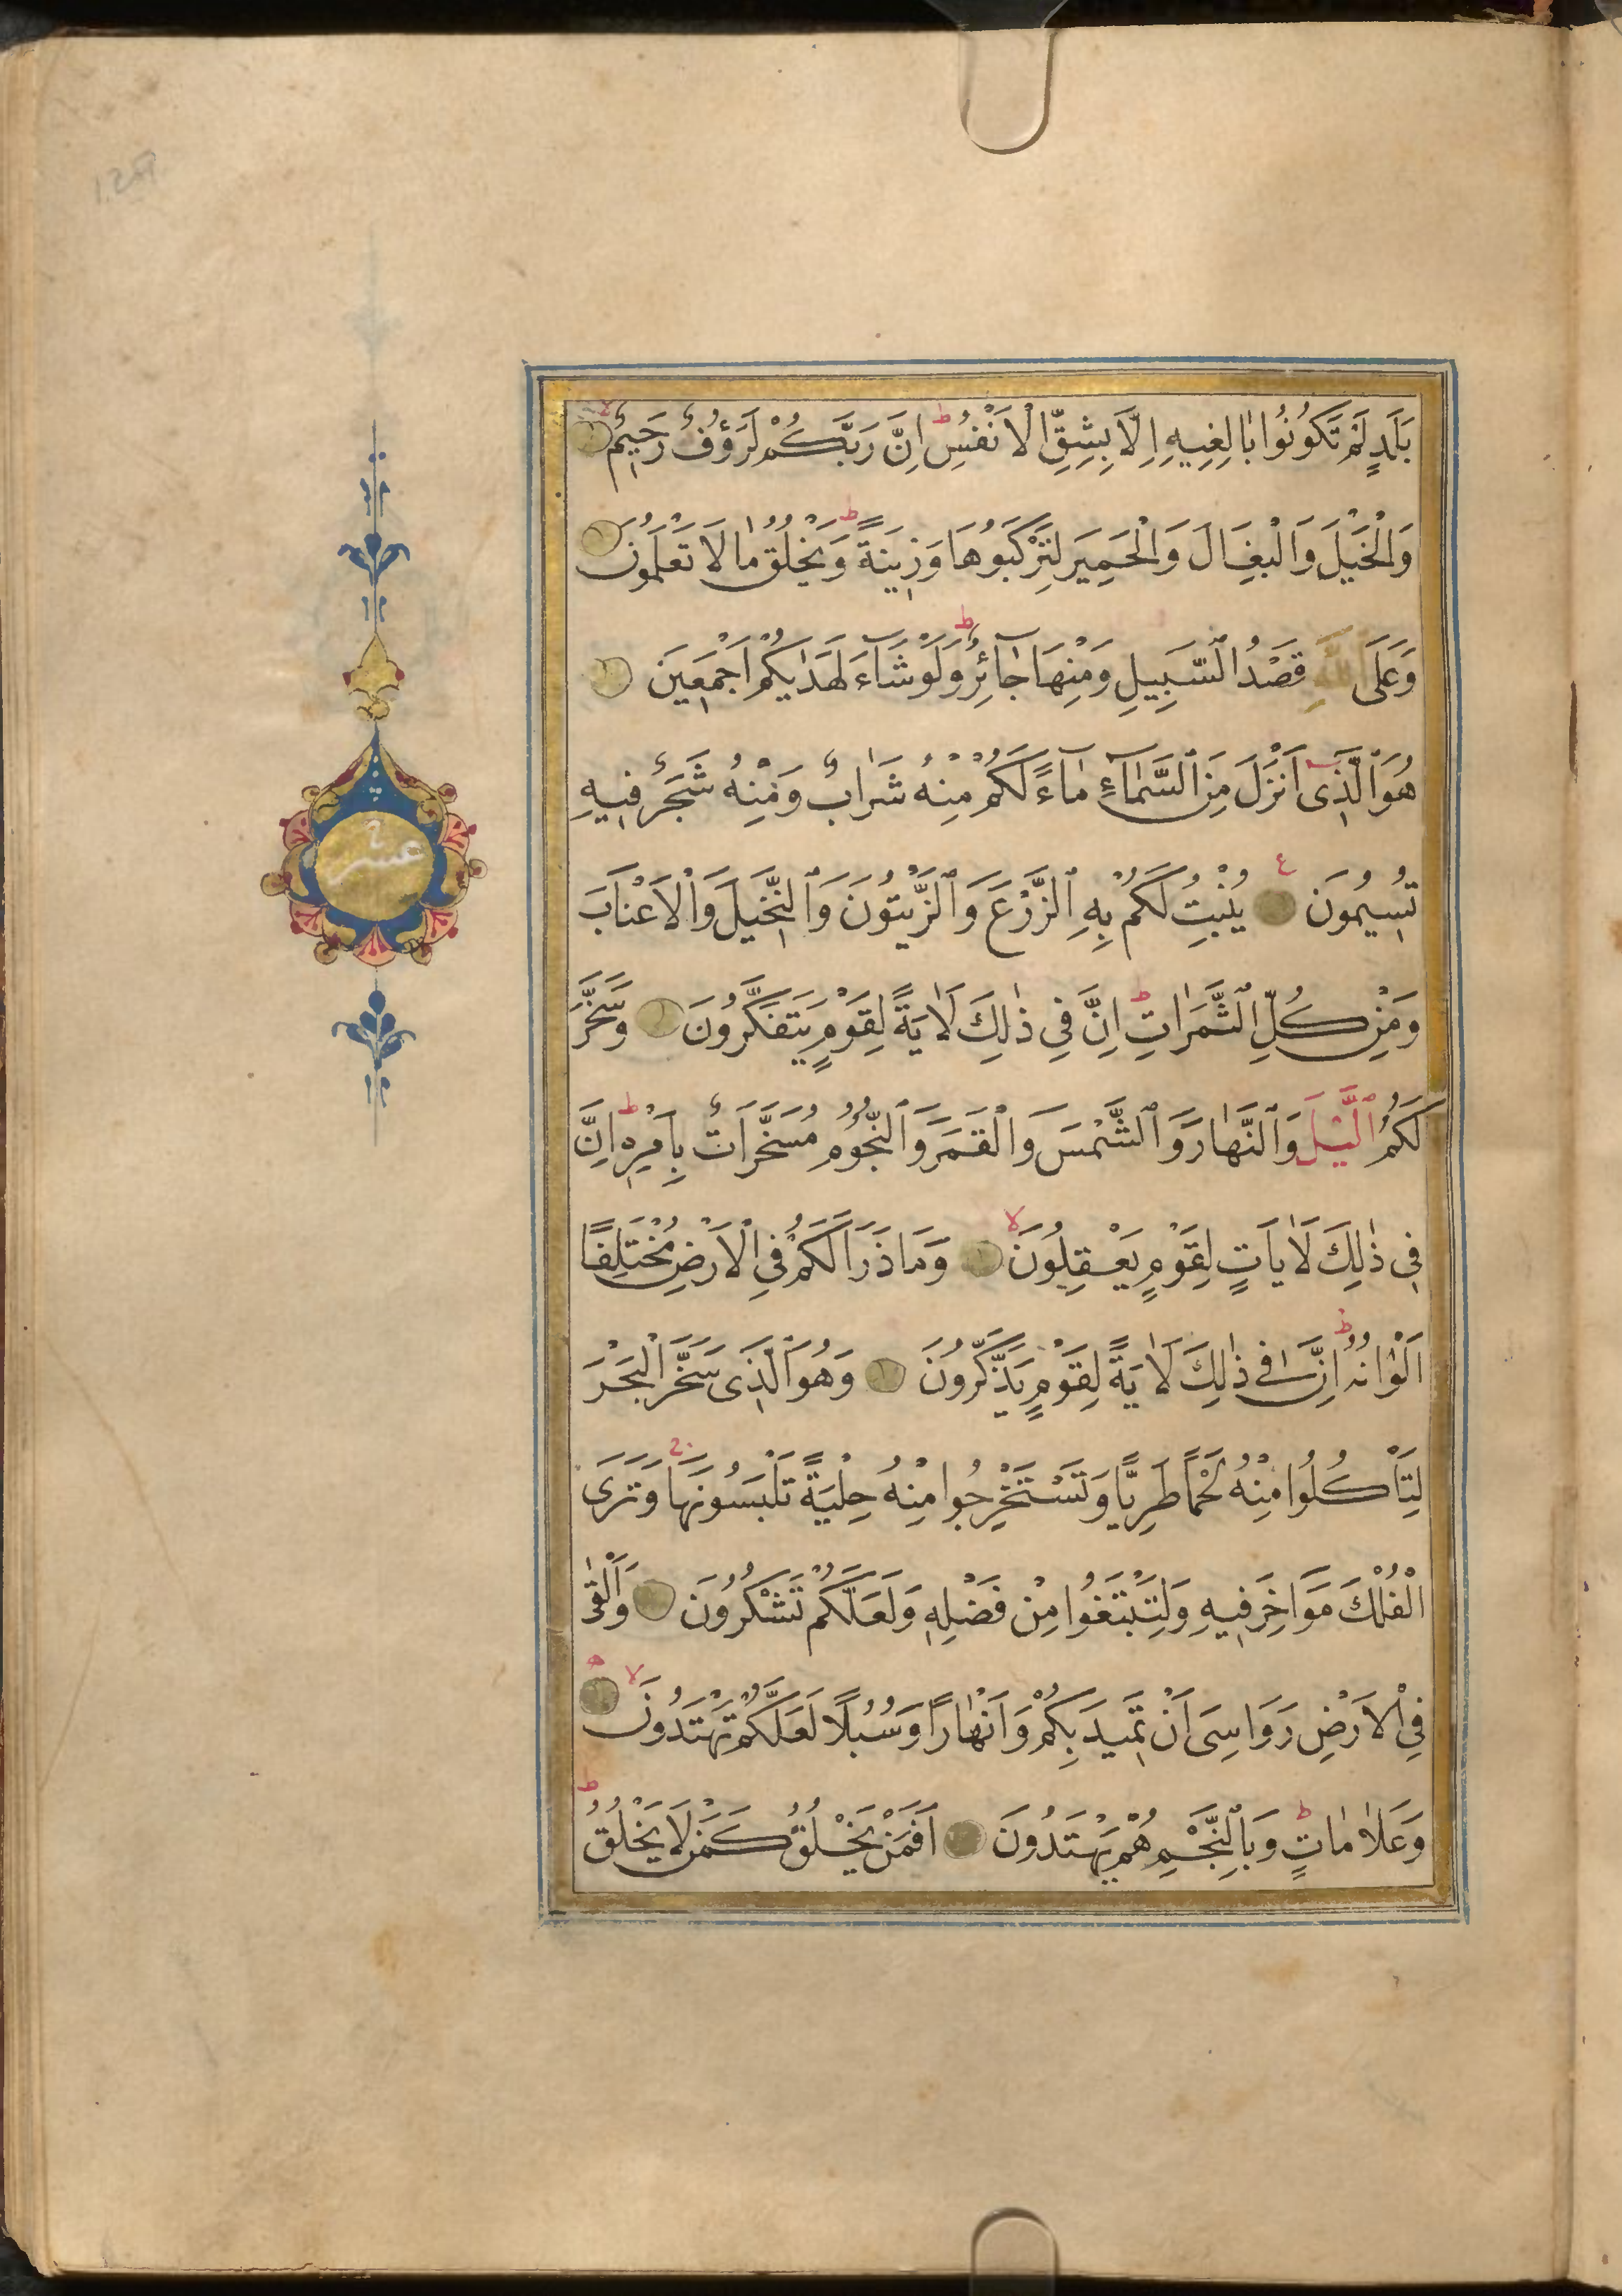 بَلَدٍ لَمْ تَكُونُوا بَالِغِيهِ اِلَّا بِشِقِّ الْاَنْفُسِ ط اِنَّ رَبَّكُمْ لَرَؤُفٌ رَحِيمٌ لا
وَالْخَيْلَ وَالْبِغَالَ وَالْحَمِيرَ لِتَرْكَبُوهَا وَزِينَةً ط وَيَخْلُقُ مَا لَا تَعْلَمُونَ
وَعَلَى اللَّهِ قَصْدُ السَّبِيلِ وَمِنْهَا جَآئِرٌ ط وَلَوْ شَآءَ لَهَدٰيكُمْ اَجْمَعِينَ
هُوَ الَّذِى اَنْزَلَ مِنَ السَّمَآءِ مَآءً لَكُمْ مِنْهُ شَرَابٌ وَمِنْهُ شَجَرٌ فِيهِ
تُسِيمُونَ ع يُنْبِتُ لَكُمْ بِهِ الزَّرْعَ وَالزَّيْتُونَ وَالنَّخِيلَ وَالْاَعْنَابَ
وَمِنْ كُلِّ الثَّمَرَاتِ ط اِنَّ فِى ذٰلِكَ لَاٰيَةً لِقَوْمٍ يَتَفَكَّرُونَ وَسَخَّرَ
لَكُمُ الَّيْلَ وَالنَّهَارَ وَالشَّمْسَ وَالْقَمَرَ وَالنُّجُومُ مُسَخَّرَاتٌ بِاَمْرِهِ ط اِنَّ
فِى ذٰلِكَ لَاٰيَاتٍ لِقَوْمٍ يَعْقِلُونَ لا وَمَا ذَرَاَ لَكُمْ فِى الْاَرْضِ مُخْتَلِفًا
اَلْوَانُهُ ط اِنَّ فِى ذٰلِكَ لَاٰيَةً لِقَوْمٍ يَذَّكَّرُونَ وَهُوَ الَّذِى سَخَّرَ الْبَحْرَ
لِتَاْكُلُوا مِنْهُ لَحْمًا طَرِيًّا وَتَسْتَخْرِجُوا مِنْهُ حِلْيَةً تَلْبَسُونَهَا ج وَتَرَى
الْفُلْكَ مَوَاخِرَ فِيهِ وَلِتَبْتَغُوا مِنْ فَضْلِهِ وَلَعَلَّكُمْ تَشْكُرُونَ وَاَلْقٰى
فِى الْاَرْضِ رَوَاسِىَ اَنْ تَمِيدَ بِكُمْ وَاَنْهَارًا وَسُبُلًا لَعَلَّكُمْ تَهْتَدُونَ لا
وَعَلَامَاتٍ ط وَبِالنَّجْمِ هُمْ يَهْتَدُونَ اَفَمَنْ يَخْلُقُ كَمَنْ لَا يَخْلُقُ ط
عشر